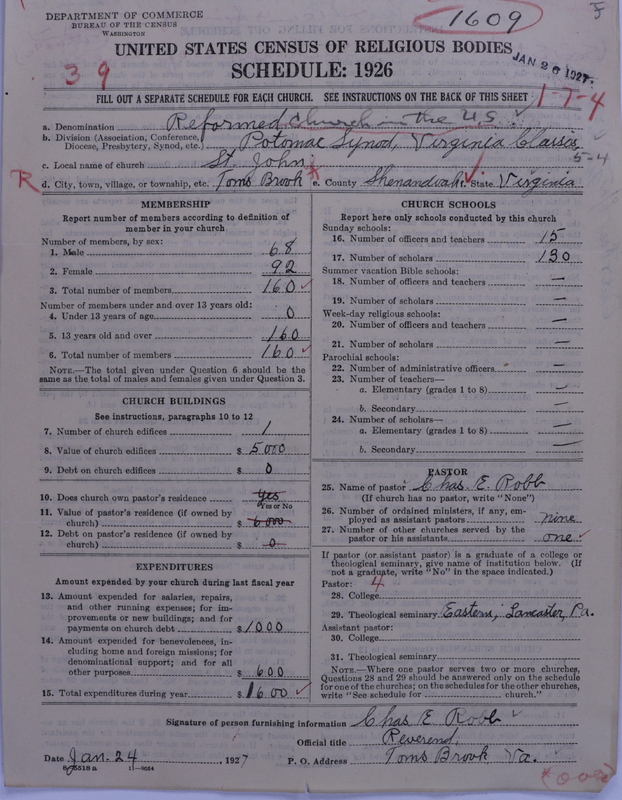 DEPARTMENT OF COMMERCE
BUREAU OF THE CENSUS
WASHINGTON
1609
UNITED STATES CENSUS OF RELIGIOUS BODIES
JAN 26 1927
39
SCHEDULE: 1926
FILL OUT A SEPARATE SCHEDULE FOR EACH CHURCH. SEE INSTRUCTIONS ON THE BACK OF THIS SHEET
1-7-4
a. Denomination Reformed Church in the U.S.
b. Division (Association, Conference, Diocese, Presbytery, Synod, etc.) Potomac Synod, Virginia Classis
5-4
c. Local name of church St. John
R
d. City, town, village, or township, etc. Toms Brook e. County Shenandoah f. State Virginia
MEMBERSHIP
Report number of members according to definition of
member in your church
Number of members, by sex:
1. Male 68
2. Female 92
3. Total number of members 160
Number of members under and over 13 years old:
4. Under 13 years of age 0
5. 13 years old and over 160
6. Total number of members 160
NOTE.—The total given under Question 6 should be
same as the total of males and females given under Question 3.
CHURCH BUILDINGS
See instructions, paragraphs 10 to 12
7. Number of church edifices 1
8. Value of church edifices $ 5000
9. Debt on church edifices $ 0
10. Does church own pastor's residence yes
Yes or No
11. Value of pastor's residence (if owned by
church) $ 6000
12. Debt on pastor's residence (if owned by
church) $ 0
EXPENDITURES
Amount expended by your church during last fiscal year
13. Amount expended for salaries, repairs,
and other running expenses; for im-
provements or new buildings; and for
payments on church debt $ 1000
14. Amount expended for benevolences, in-
cluding home and foreign missions; for
denominational support; and for all
other purposes $ 600
15. Total expenditures during year $ 1600
CHURCH SCHOOLS
Report here only schools conducted by this church
Sunday schools:
16. Number of officers and teachers 15
17. Number of scholars 130
Summer vacation Bible schools:
18. Number of officers and teachers —
19. Number of scholars —
Week-day religious schools:
20. Number of officers and teachers —
21. Number of scholars —
Parochial schools:
22. Number of administrative officers —
23. Number of teachers—
a. Elementary (grades 1 to 8) —
b. Secondary —
24. Number of scholars—
a. Elementary (grades 1 to 8) —
b. Secondary —
PASTOR
25. Name of pastor Chas E. Robb
(If church has no pastor, write "None")
26. Number of ordained ministers, if any, em-
ployed as assistant pastors none
27. Number of other churches served by the
pastor or his assistants one
If pastor (or assistant pastor) is a graduate of a college or
theological seminary, give name of institution below. (If
not a graduate, write "No" in the space indicated.)
Pastor: 4
28. College
29. Theological seminary Eastern, Lancaster, Pa.
Assistant pastor:
30. College
31. Theological seminary
NOTE.—Where one pastor serves two or more churches,
Questions 28 and 29 should be answered only on the schedule
for one of the churches; on the schedules for the other churches,
write "See schedule for church."
Signature of person furnishing information Chas E. Robb
Official title Reverend
Date Jan. 24, 1927 P. O. Address Toms Brook Va.